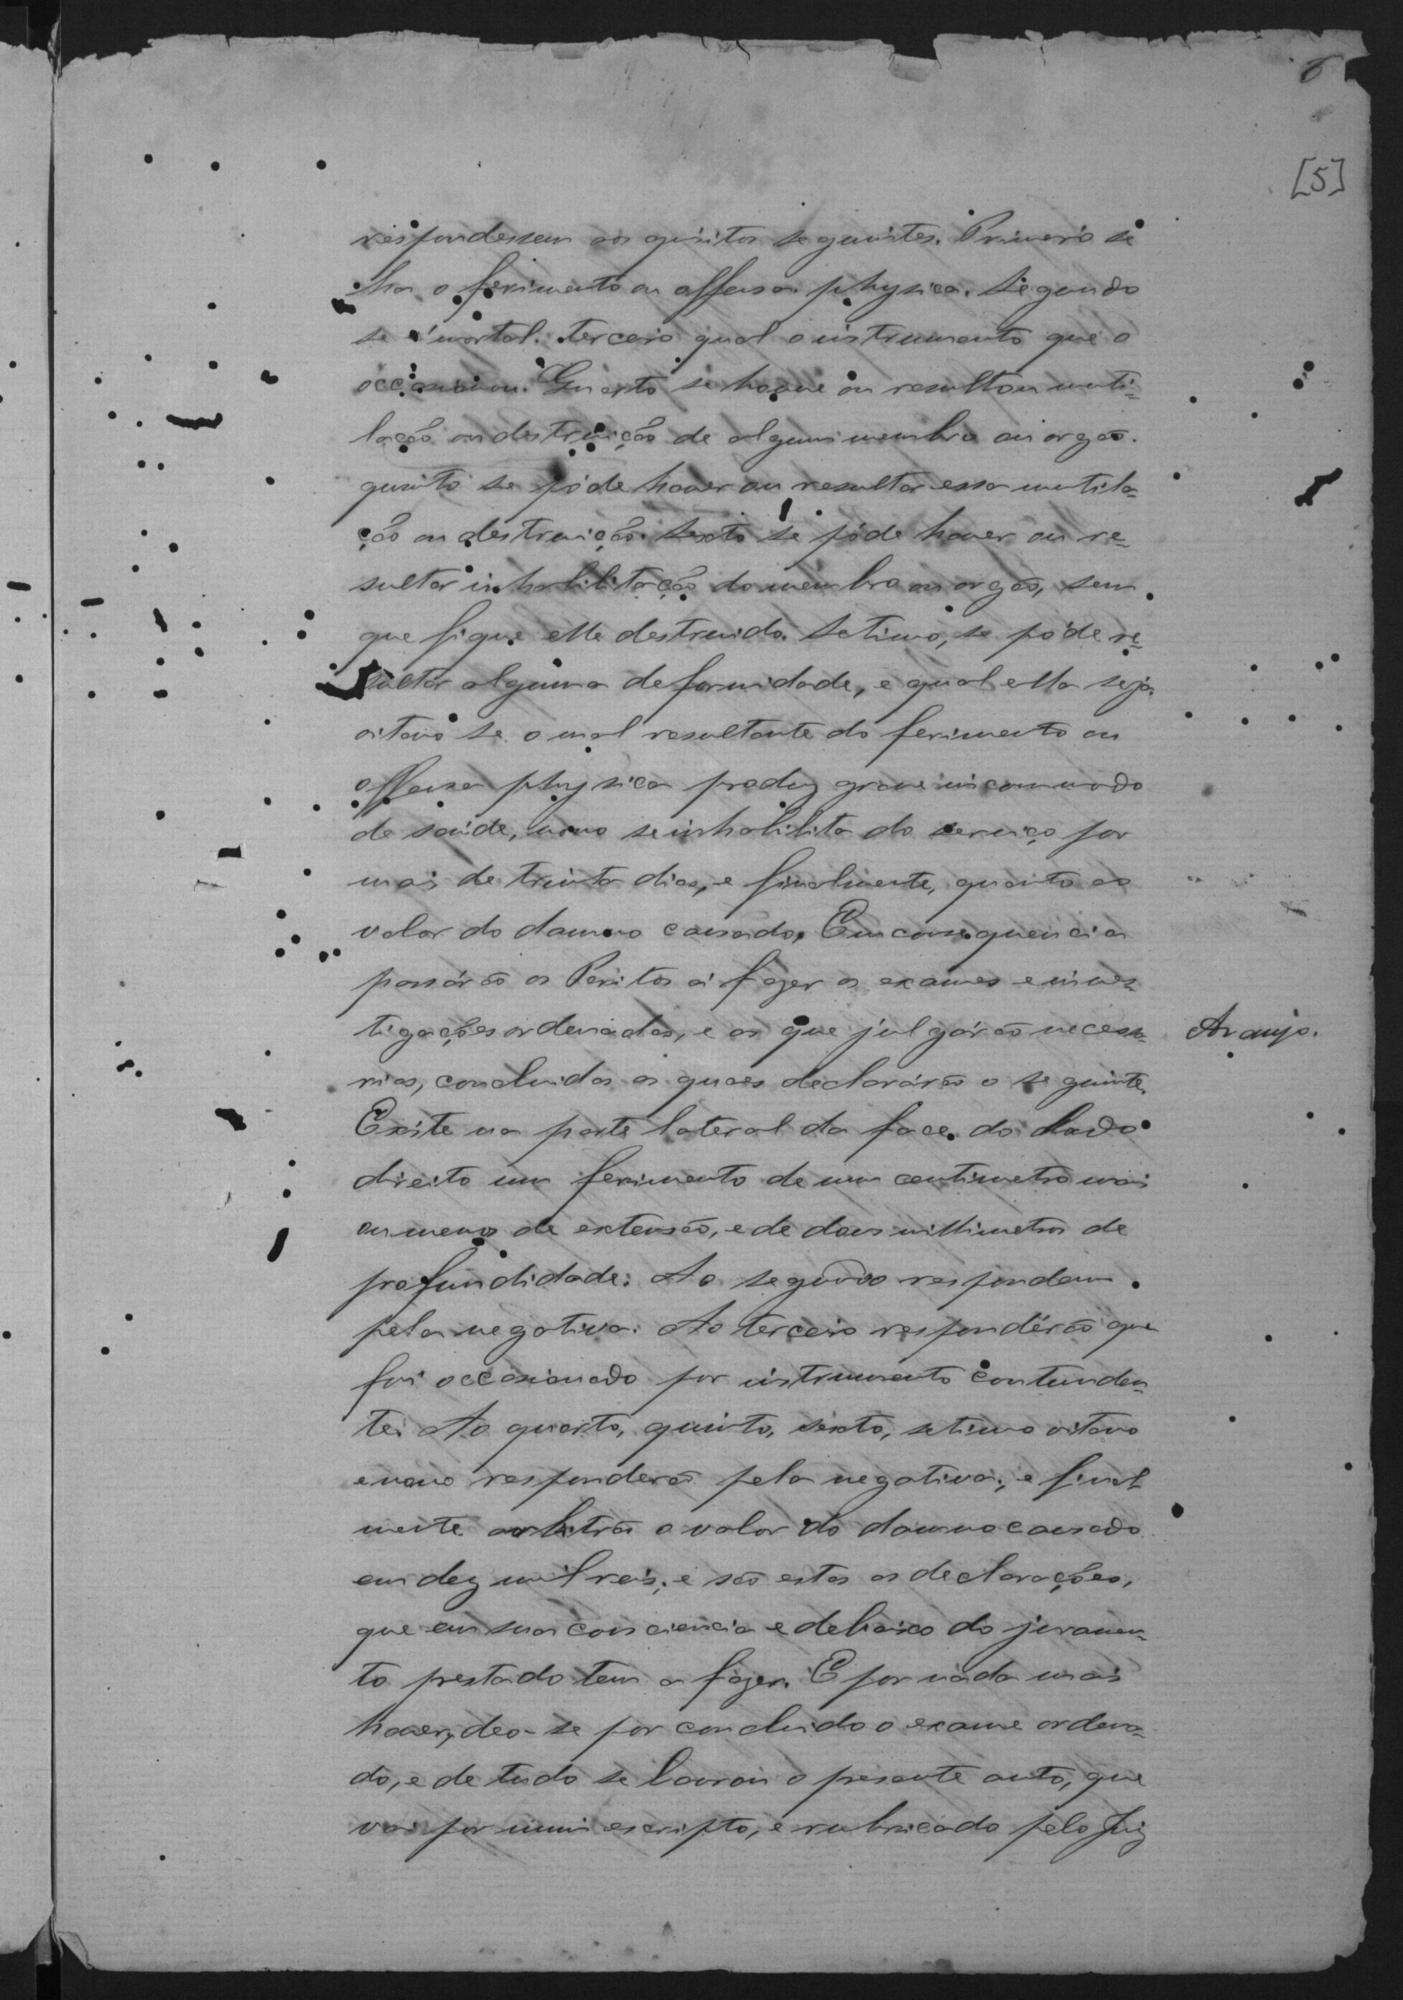 6
[5]
respondessem aos quisitos seguintes. Primeiro se
ha o ferimento ou offensa physica. Segundo
se é mortal. terceiro qual o instrumento que o
occasionou. Quarto se houve ou resultou muti=
lação ou destruição de algum membro ou orgão.
quinto se póde haver ou resultar essa mutila=
ção ou destruição. Sexto se póde haver ou re=
sultar inhabilitação do membro ou orgão, sem
que fique elle destruido. Setimo, se póde re=
sultar alguma deformidade, e qual ella seja.
oitavo se o mal resultante do ferimento ou
offensa physica produz grave incommodo
de saúde, nono se inhabilita do serviço por
mais de trinta dias, e finalmente, quanto ao
valor do damno causado. Em consequencia
passárão os Peritos á fazer os exames e inves=
tigações ordenadas, e as que julgárão necessa=
Araujo.
rias, concluidas as quaes declarárão o seguinte.
Existe na parte lateral da face do lado
direito um ferimento de um centimetro mais
ou menos de extensão, e de dous millimetros de
profundidade: Ao segundo respondem
pela negativa: Ao terceiro respondérão que
foi occasionado por instrumento contunden=
te: Ao quarto, quinto, sexto, setimo oitavo
e nono responderão pela negativa; e final=
mente arbitrão o valor do damno causado
em dez mil reis; e são estas as declarações,
que em sua consciencia e debaixo do juramen=
to prestado tem a fazer. E por nada mais
haver, deo-se por concluido o exame ordena=
do, e de tudo se lavrou o presente auto, que
vai por mim escripto, e rubricado pelo Juiz